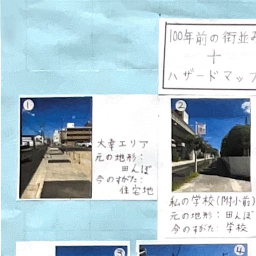 100年前の街並み
+
ハザードマップ
①
大幸エリア
元の地形:
田んぼ
今のすがた:
住宅地
②
私の学校(附小前)
元の地形:田んぼ
今のすがた:学校
③
④